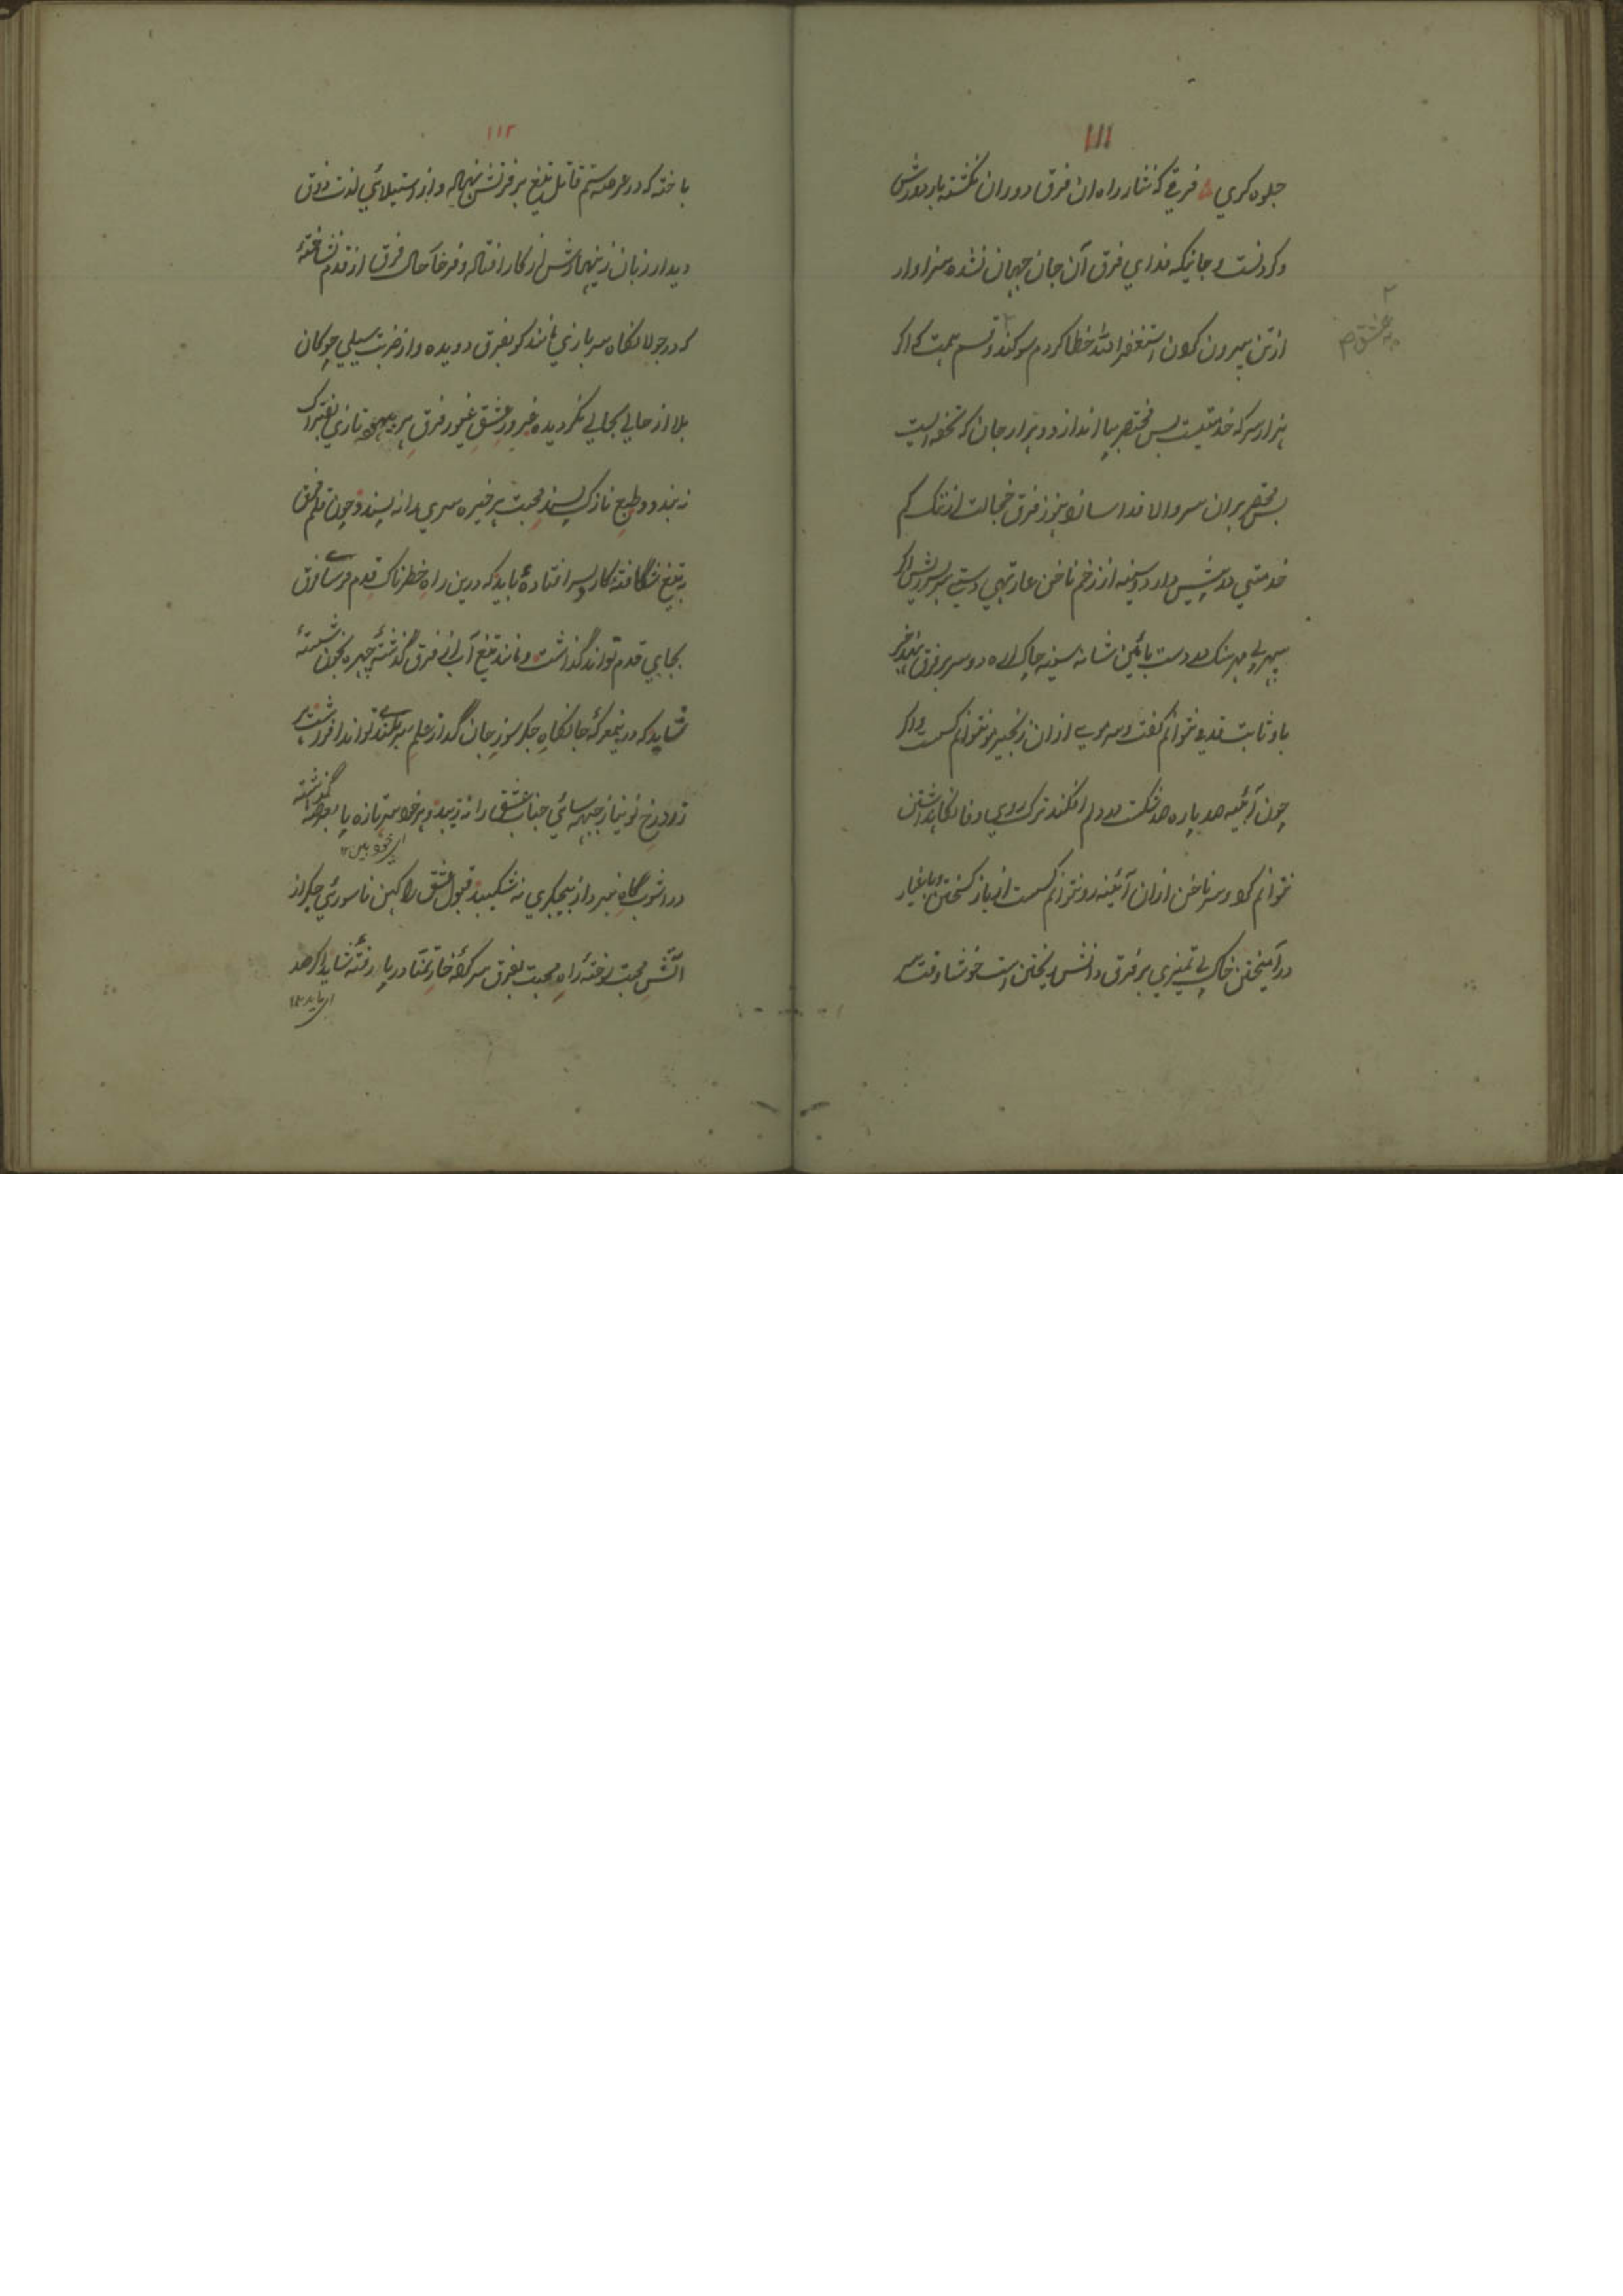 ۱۱۱
جلوه کری فرقے که نثار راه ان فرق دوران نکشته بار دوش
و کردنست و جانیکه فدای فرق آن جان جهان نشده سزاوار
از تن بیرون کردن استغفرالله خطا کردم سوکند و قسم بمحبت که اکر
هزار سر که خدمتیست بس مختصر بپا اندازد و هزار جان که تحفه ایست
بس محقر بران سر والا فدا سازد هنوز فرق خجالت از ننک کم
خدمتی در پیش دارد و سینه از زخم ناخن عار تهی دستی اکر
سپهر بی مهر سنک دست بائین شانه سینه چاک و سر بر فرق
با و ثابت قدم نتوانم کفت و سر موے ازان زنجیر مو نتوانم کسست و اکر
چون آئینه صد پاره صد شکست در دلم افکند ترک روی و وفا نکاهداشتن
نتوانم کرد و سر ناخن ازان آئینه رو نتوانم کسست از یار کسختن و باغیار
در آمیختن خاک بی تمیزی بر فرق دانش بیختن است خوشا وقت سر
۲
عشق م
۱۱۲
باخته که در عرصه ستم قاتل تیغ بر فرقش نهاده و از استیلائی لذت ذوق
دیدار زبان زینهارش از کار افتاده و فرخا حال فرق از قدم نشناختهٔ
که در جولانکاه سربازی مانند کو بفرق دویده و از ضربت سیلی چوکان
بلا از جایی بجایی نکردیده غرور عشق غیور فرق هر تازی بفتراک
نه بندد و طبع نازک پسند محبت هر خیره سری را نه پسندد چون قلم فرق
به تیغ شکافته کار بسر افتادهٔ باید که درین راه خطرناک قدم فرق
بجای قدم تواند گذاشت و مانند تیغ آب از فرق گذشته چهره بخون شستهٔ
شاید که درینمعرکهٔ جانکاه جکر سوز جان گداز علم سر بلندے تواند افراشت
زرد رخ نو نیاز جبهه سائی جناب عشق را نزیبد و هر خود سر تازه پا بعرصه گذاشته
در اشوب گاه نبرد از بیجکری نه شکیبد قبول عشق را کهن ناسورئی جکر از
ای خود بین ۱۲
آتش محبت سوختهٔ راه محبت بفرق سر کردهٔ خار تمنا در پا رفتهٔ شاید که صد
ای باید ۱۲